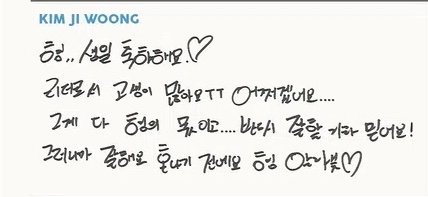 KIM JI WOONG
형.. 생일 축하해요.♡
리더로서 고생이 많아요ㅜㅜ 어쩌겠어요....
그게 다 형의 몫이고.... 반드시 잘할 거라 믿어요!
그러니까 잘해요 혼나기 전에요 형 알라븅♡